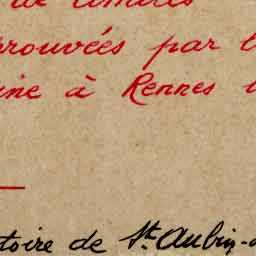 de
prouvées par l
ine à Rennes l
toire de St. Aubin-d